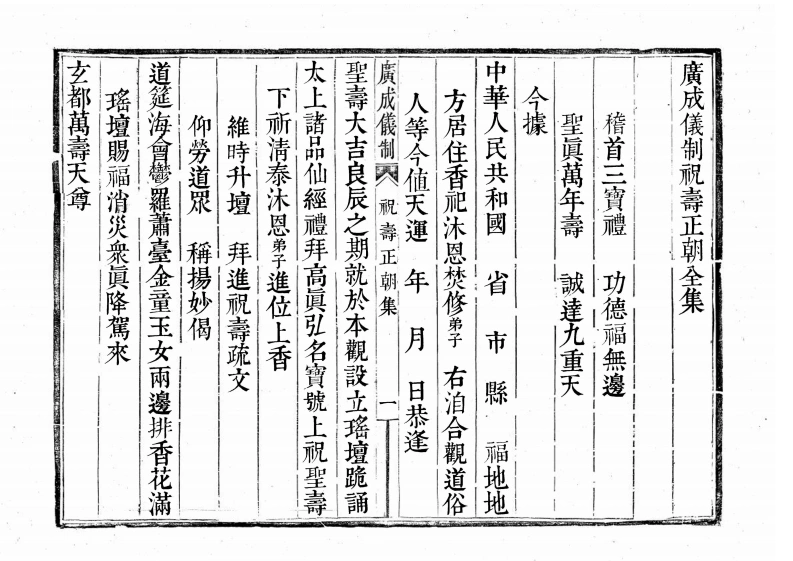 廣成儀制祝壽正朝全集
稽首三寶禮 功德福無邊
聖眞萬年壽 誠達九重天
今據
中華人民共和國 省 市 縣 福地地
方居住香祀沐恩焚修弟子 右洎合觀道俗
人等今値天運 年 月 日恭逢
廣成儀制 祝壽正朝集 一
聖壽大吉良辰之期就於本觀設立瑤壇跪誦
太上諸品仙經禮拜高眞弘名寶號上祝聖壽
下祈淸泰沐恩弟子進位上香
維時升壇 拜進祝壽疏文
仰勞道眾 稱揚妙偈
道筵海會鬱羅蕭臺金童玉女兩邊排香花滿
瑤壇賜福消災衆眞降駕來
玄都萬壽天尊